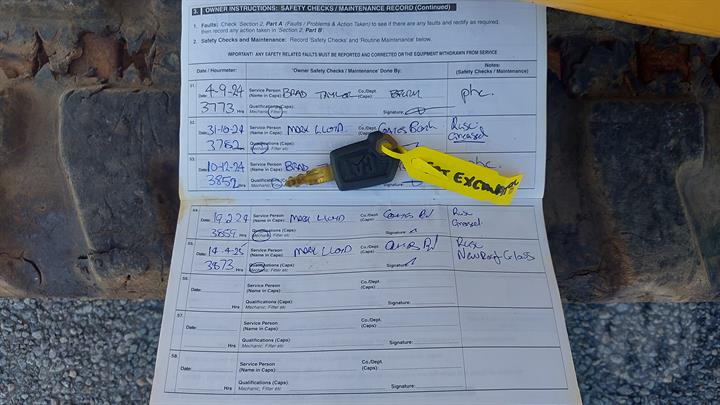 3. OWNER INSTRUCTIONS: SAFETY CHECKS / MAINTENANCE RECORD (Continued)
1. Faults: Check 'Section 2, Part A (Faults / Problems & Action Taken) to see if there are any faults and rectify as required, then record any action taken in 'Section 2, Part B'
2. Safety Checks and Maintenance: Record 'Safety Checks' and 'Routine Maintenance' below.
IMPORTANT! ANY SAFETY RELATED FAULTS MUST BE REPORTED AND CORRECTED OR THE EQUIPMENT WITHDRAWN FROM SERVICE
Date / Hourmeter: Owner Safety Checks / Maintenance' Done By: Notes: (Safety Checks / Maintenance)
51. Date: 4-9-24 Service Person (Name in Caps): BRAD TAYLOR Co./Dept. (Caps):
3773 Hrs Qualifications (Caps): Mechanic, Fitter etc Signature:
52. Date: 31-10-24 Service Person (Name in Caps): MARK LLOYD Co./Dept. (Caps):
Hrs Qualifications (Caps): Mechanic, Fitter etc Signature: Greased
53. Date: 10-12-24 Service Person BRAD
3852 Hrs Qualifications Mechanic
CAT
54. Date: Service Person (Name in Caps): MARK LLOYD Co./Dept. (Caps):
3859 Hrs Qualifications (Caps): Mechanic, Fitter etc Signature: Greased
55. Date: 14-4-25 Service Person (Name in Caps): MARK LLOYD Co./Dept. (Caps):
3873 Hrs Qualifications (Caps): Mechanic, Fitter etc Signature: New Roof Glass
56. Date: Service Person (Name in Caps): Co./Dept. (Caps):
Hrs Qualifications (Caps): Mechanic, Fitter etc Signature:
57. Date: Service Person (Name in Caps): Co./Dept. (Caps):
Hrs Qualifications (Caps): Mechanic, Fitter etc Signature:
58. Date: Service Person (Name in Caps): Co./Dept. (Caps):
Hrs Qualifications (Caps): Mechanic, Fitter etc Signature: